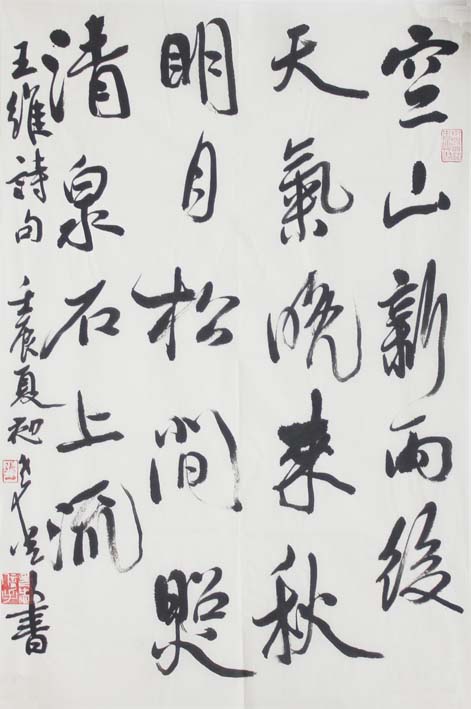 空山新雨後
天氣晚来秋
明月松間照
清泉石上流
王維詩句 壬辰夏初 書